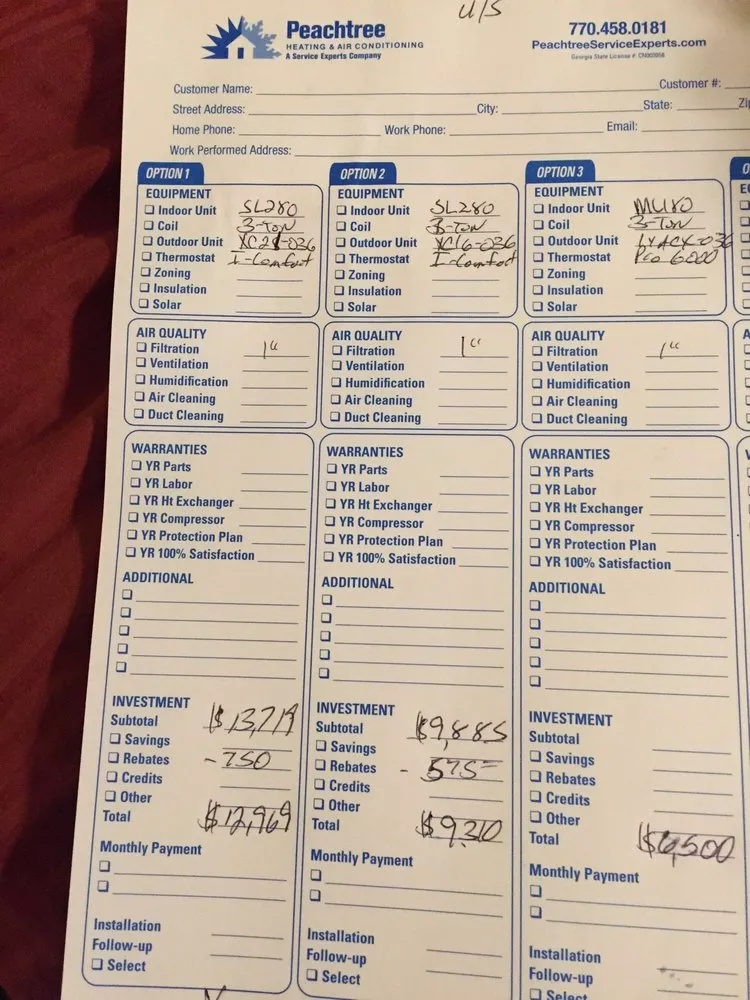 U/S
Peachtree
HEATING & AIR CONDITIONING
A Service Experts Company
770.458.0181
PeachtreeServiceExperts.com
Georgia State License #
Customer Name: Customer #:
Street Address: City: State: Zi
Home Phone: Work Phone: Email:
Work Performed Address:
OPTION 1
EQUIPMENT
Indoor Unit SL280
Coil 3-Ton
Outdoor Unit XC21-036
Thermostat I-Comfort
Zoning
Insulation
Solar
AIR QUALITY
Filtration 1"
Ventilation
Humidification
Air Cleaning
Duct Cleaning
WARRANTIES
YR Parts
YR Labor
YR Ht Exchanger
YR Compressor
YR Protection Plan
YR 100% Satisfaction
ADDITIONAL
INVESTMENT
Subtotal $13,719
Savings
Rebates -750
Credits
Other
Total $12,969
Monthly Payment
Installation
Follow-up
Select
OPTION 2
EQUIPMENT
Indoor Unit SL280
Coil 3-Ton
Outdoor Unit XC16-036
Thermostat I-Comfort
Zoning
Insulation
Solar
AIR QUALITY
Filtration 1"
Ventilation
Humidification
Air Cleaning
Duct Cleaning
WARRANTIES
YR Parts
YR Labor
YR Ht Exchanger
YR Compressor
YR Protection Plan
YR 100% Satisfaction
ADDITIONAL
INVESTMENT
Subtotal $9,885
Savings
Rebates - 575
Credits
Other
Total $9,310
Monthly Payment
Installation
Follow-up
Select
OPTION 3
EQUIPMENT
Indoor Unit
Coil 3-Ton
Outdoor Unit
Thermostat Pro 6000
Zoning
Insulation
Solar
AIR QUALITY
Filtration 1"
Ventilation
Humidification
Air Cleaning
Duct Cleaning
WARRANTIES
YR Parts
YR Labor
YR Ht Exchanger
YR Compressor
YR Protection Plan
YR 100% Satisfaction
ADDITIONAL
INVESTMENT
Subtotal
Savings
Rebates
Credits
Other
Total $6,500
Monthly Payment
Installation
Follow-up
Select